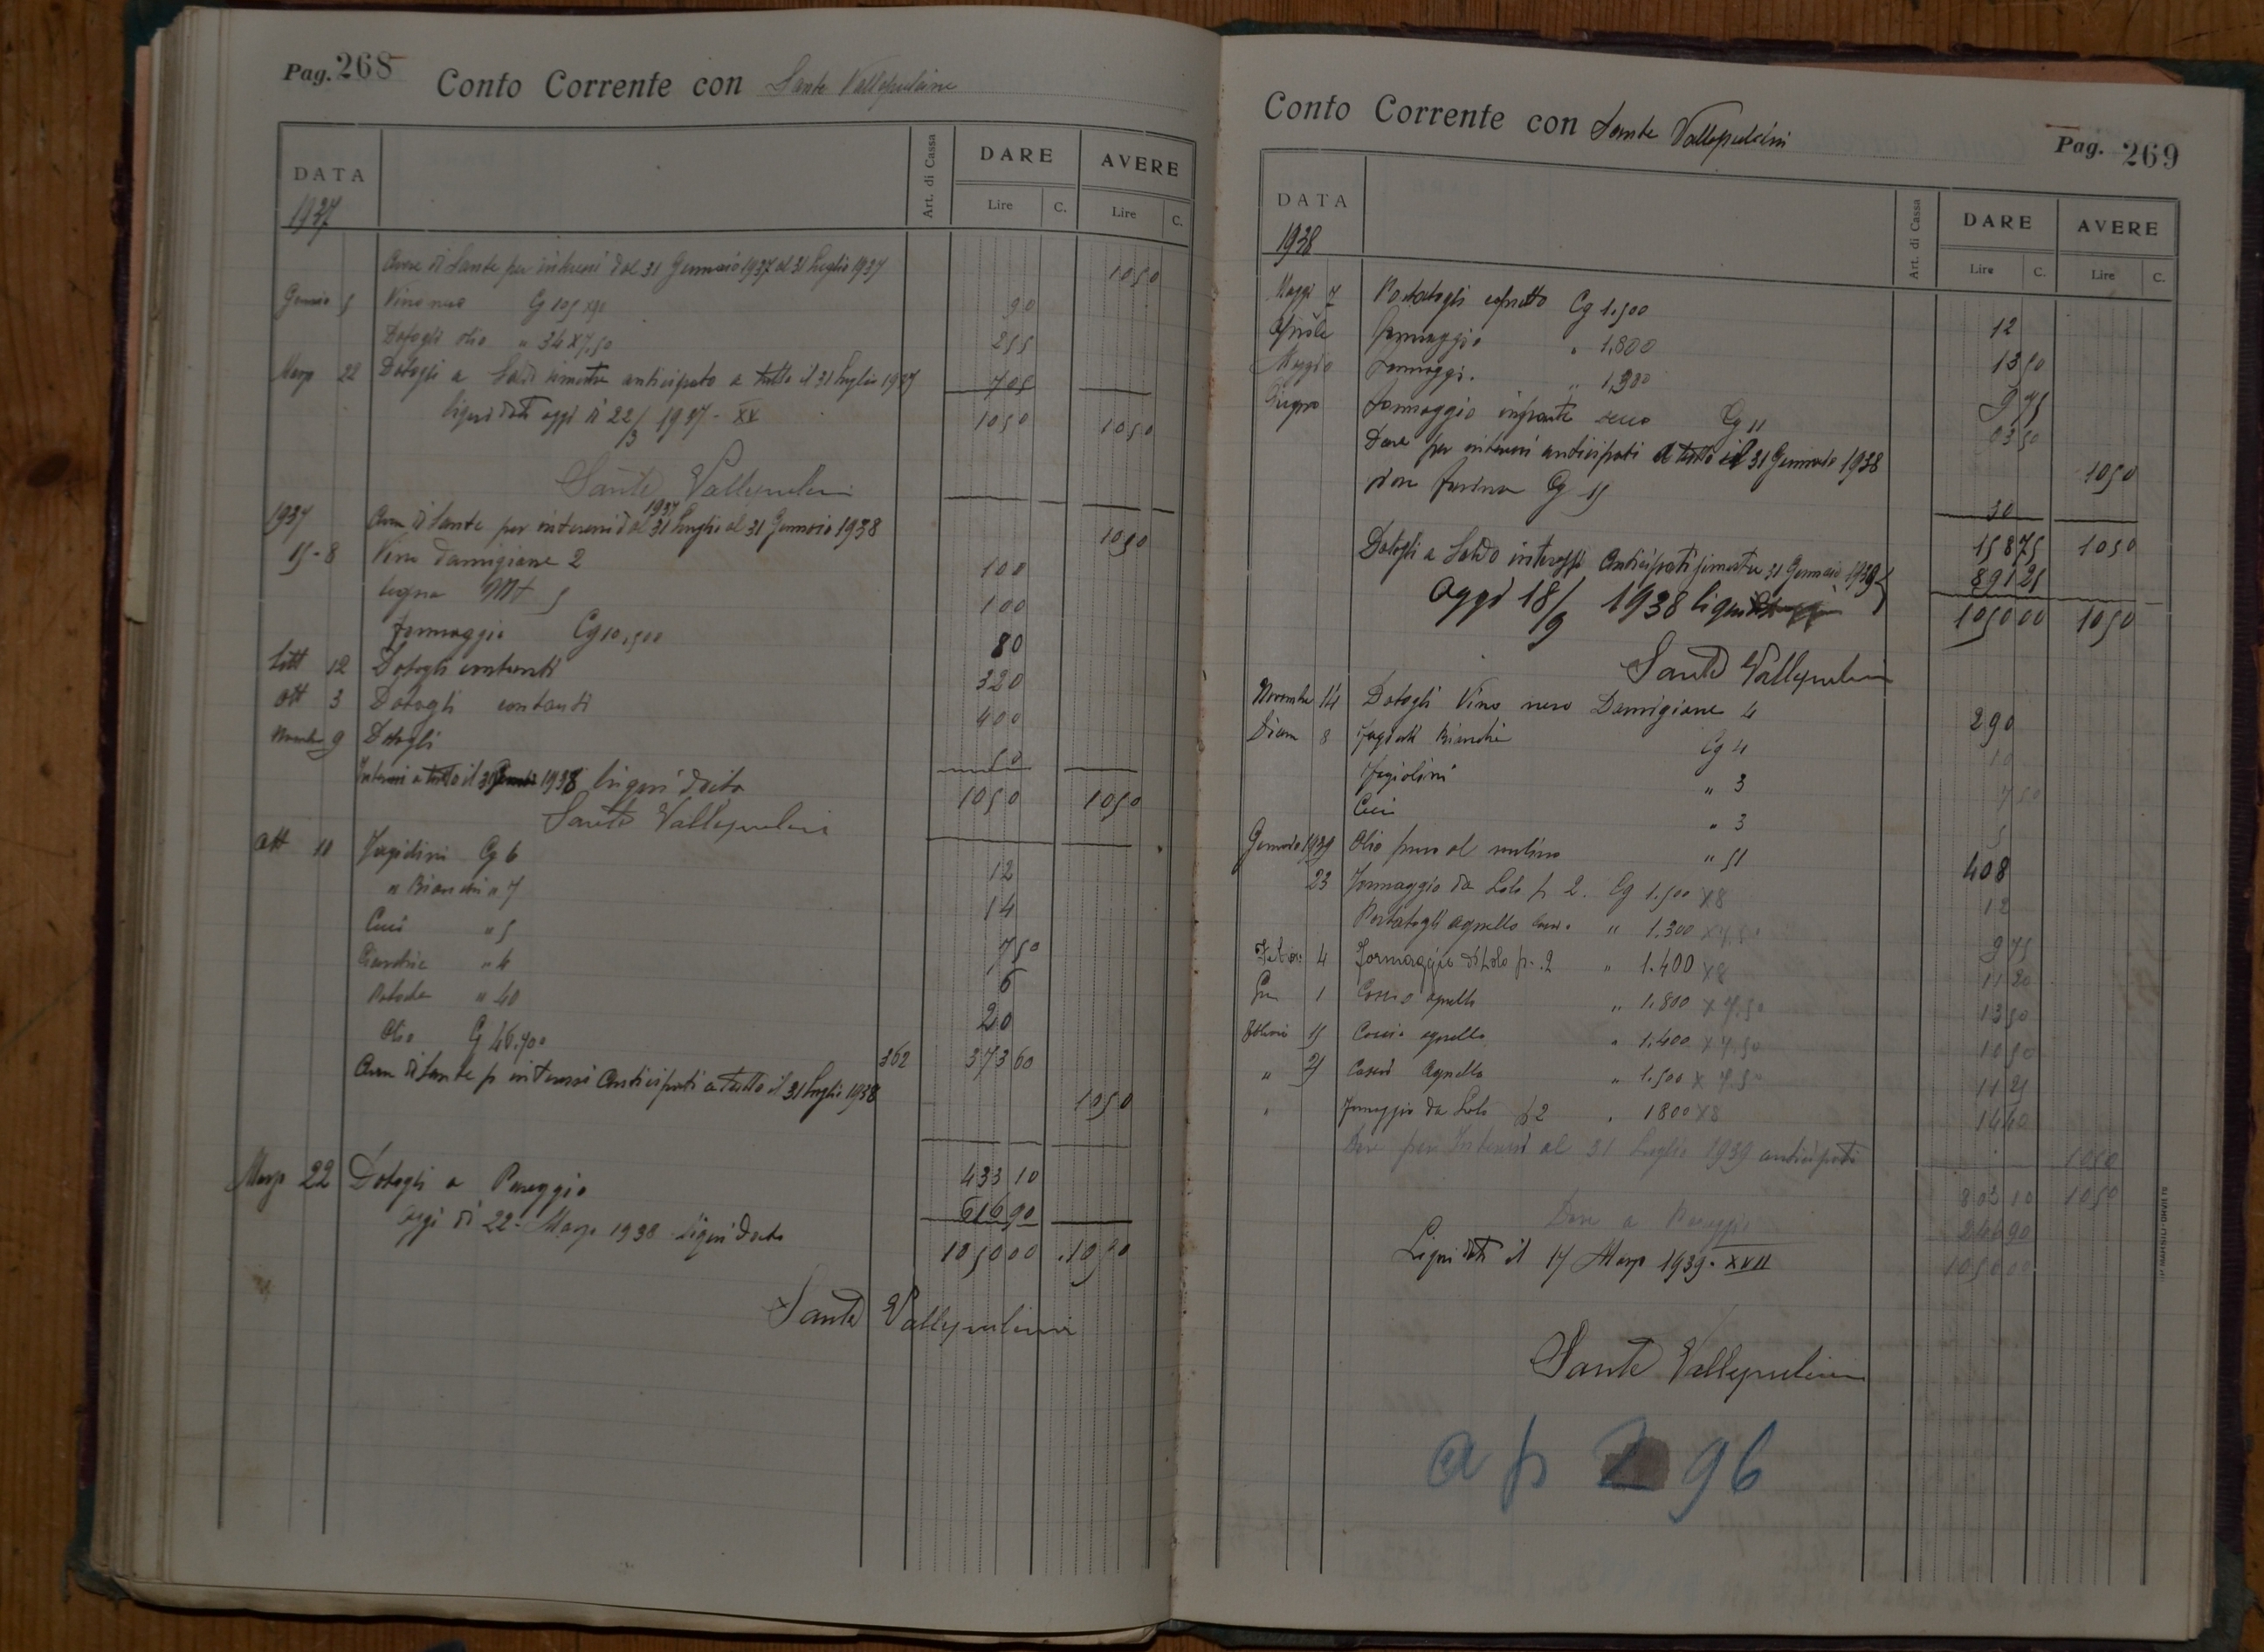 Pag. 268
Conto Corrente con Sante Vallepulcini
DATA
Art. di Cassa
DARE
AVERE
Lire C.
Lire C.
1937
Avere di Sante per interessi dal 31 Gennaio 1937 al 31 Luglio 1937 1050
5 Vino nero Cg 105 90
Datogli olio " 34 x 7,50 255
22 Datogli a Saldo anticipato a tutto il 31 Luglio 1937 705
liquidati oggi di 22/3 1937 - XV 1050 1050
Sante Vallepulcini
1937 Avere di Sante per interessi dal 31 Luglio 1937 al 31 Gennaio 1938 1050
15-8 Vino damigiane 2 100
legna Mt 5 100
formaggio Cg 10,500 80
12 Datogli contanti 320
Ott 3 Datogli contanti 400
9 Datogli 50
Interessi a tutto il 1938 liquidato 1050 1050
Sante Vallepulcini
Ott 11 Fagiolini Cg 6 12
" Bianchi " 7 14
Ceci " 5 7 50
" 4 6
Patate " 40 20
Olio Cg 46.700 362 373 60
Avere di Sante p interessi Anticipati a tutto il 31 Luglio 1938 1050
433 10
Marzo 22 Datogli a Pareggio 616 90
oggi di 22 - Marzo 1938 liquidato 1050 00 1050
Sante Vallepulcini
Conto Corrente con Sante Vallepulcini
Pag. 269
DATA
Art. di Cassa
DARE
AVERE
Lire C.
Lire C.
1938
7 Portatogli capretto Cg 1.500 12
Aprile formaggio " 1.800 13 50
Maggio formaggio " 1,300 9 75
Giugno formaggio secco Cg 11 93 50
Dare per interessi anticipati a tutto il 31 Gennaio 1938 1050
farina Cg 15 30
158 75 1050
Datogli a Saldo interessi Anticipati 31 Gennaio 1939 891 25
Oggi 18/9 1938 1050 00 1050
Sante Vallepulcini
Novembre 14 Datogli Vino nero Damigiane 4 290
8 fagioli Bianchi Cg 4 10
fagiolini " 3 7 50
Ceci " 3 5
Gennaio 1939 Olio preso al mulino " 51 408
23 Formaggio da Lolo p 2. Cg 1.500 x 8 12
Portatogli agnello " 1.300 x 7.50 9 75
4 Formaggio di Lolo p. 2 " 1.400 x 8 11 20
1 agnello " 1.800 x 7.50 13 50
15 Coscio agnello " 1.400 x 7.50 10 50
" Coscio Agnello " 1.500 x 7.50 11 25
" Formaggio da Lolo p 2 " 1800 x 8 14 40
Dare per Interessi al 31 Luglio 1939 anticipati 1050
803 10 1050
Dare a Pareggio 246 90
Liquidati il 17 Marzo 1939 - XVII 1050 00
Sante Vallepulcini
a p 2 96